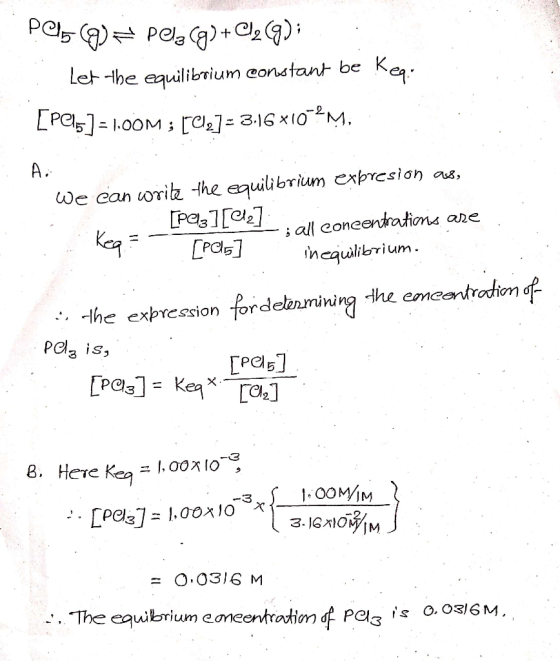 PCl₅(g) ⇌ PCl₃(g) + Cl₂(g);
Let the equilibrium constant be Keq.
[PCl₅] = 1.00M ; [Cl₂] = 3.16 × 10⁻² M.
A.
We can write the equilibrium expresion as,
Keq = [PCl₃][Cl₂] / [PCl₅] ; all concentrations are
inequilibrium.
∴ the expression for determining the concentration of
PCl₃ is,
[PCl₃] = Keq × [PCl₅] / [Cl₂]
B. Here Keq = 1.00×10⁻³,
∴ [PCl₃] = 1.00×10⁻³ × { 1.00M/1M / 3.16×10⁻²M/1M }
= 0.0316 M
∴ The equilbrium concentration of PCl₃ is 0.0316M.